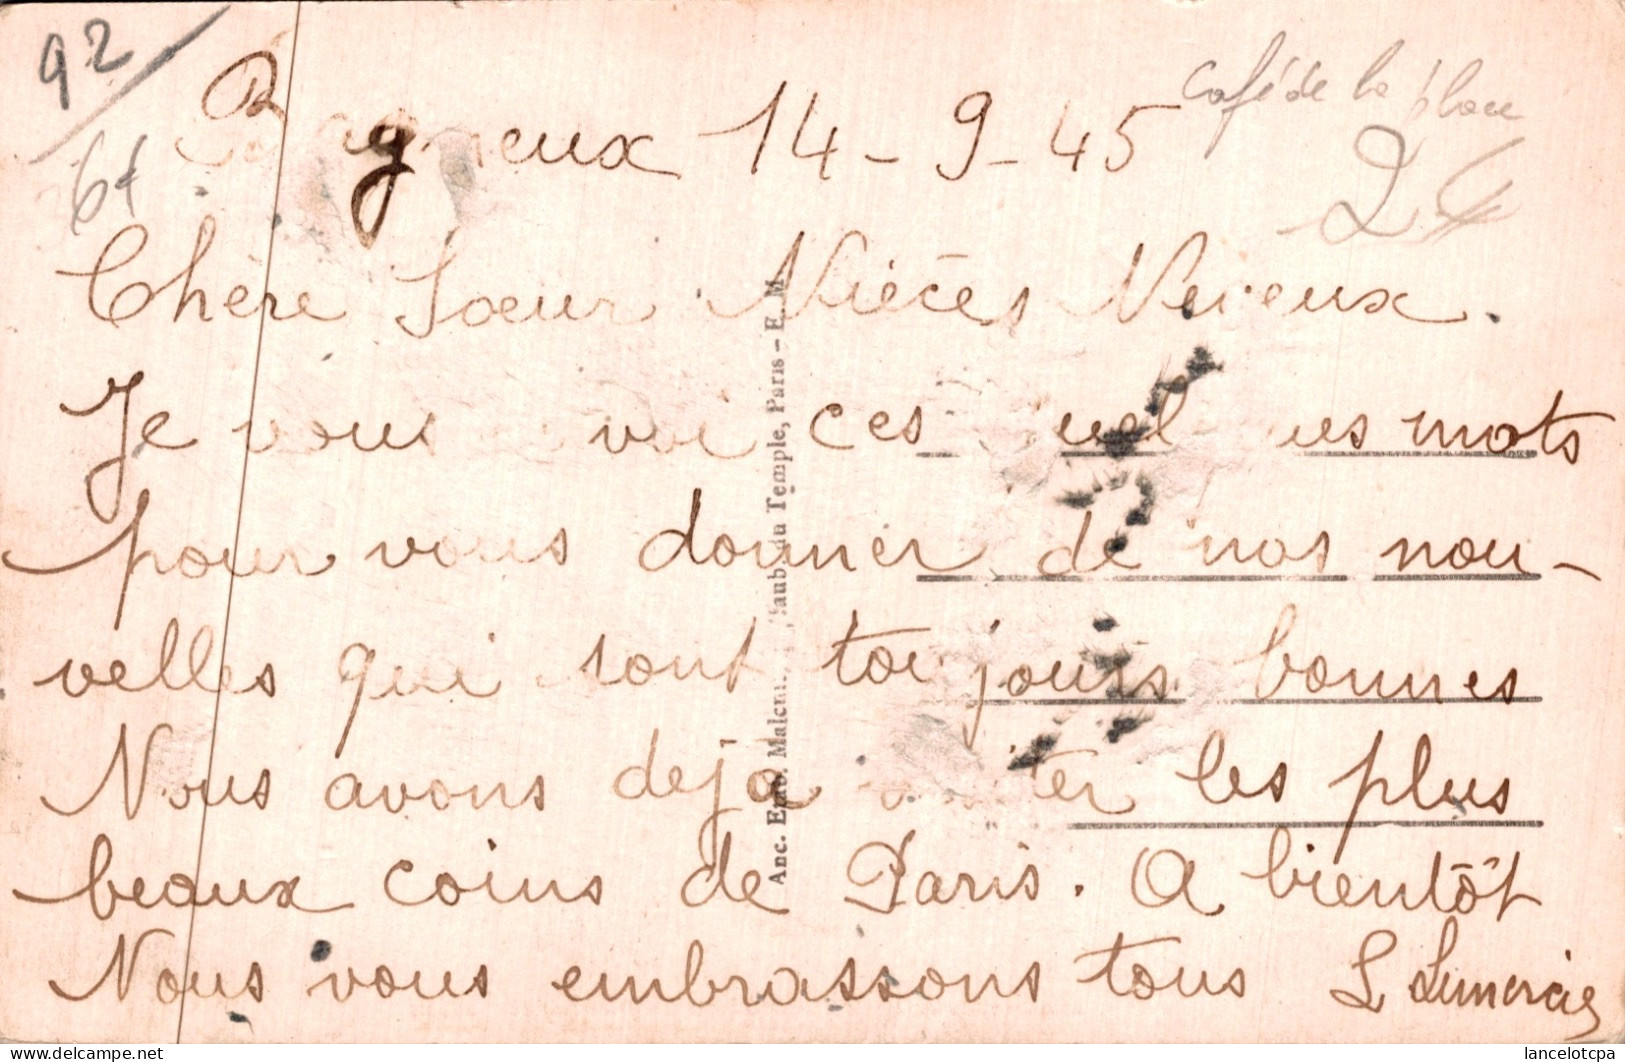 92
6f
café de la place
Bagneux 14-9-45
Chère Soeur Nièces Neveux.
Je vous ces mots
pour vous donner de nos nou-
velles qui sont toujours bonnes
Nous avons deja les plus
beaux coins de Paris. A bientôt
Nous vous embrassons tous L Lemercier
Anc. Faub. du Temple, Paris - E. M.
lancelotcpa